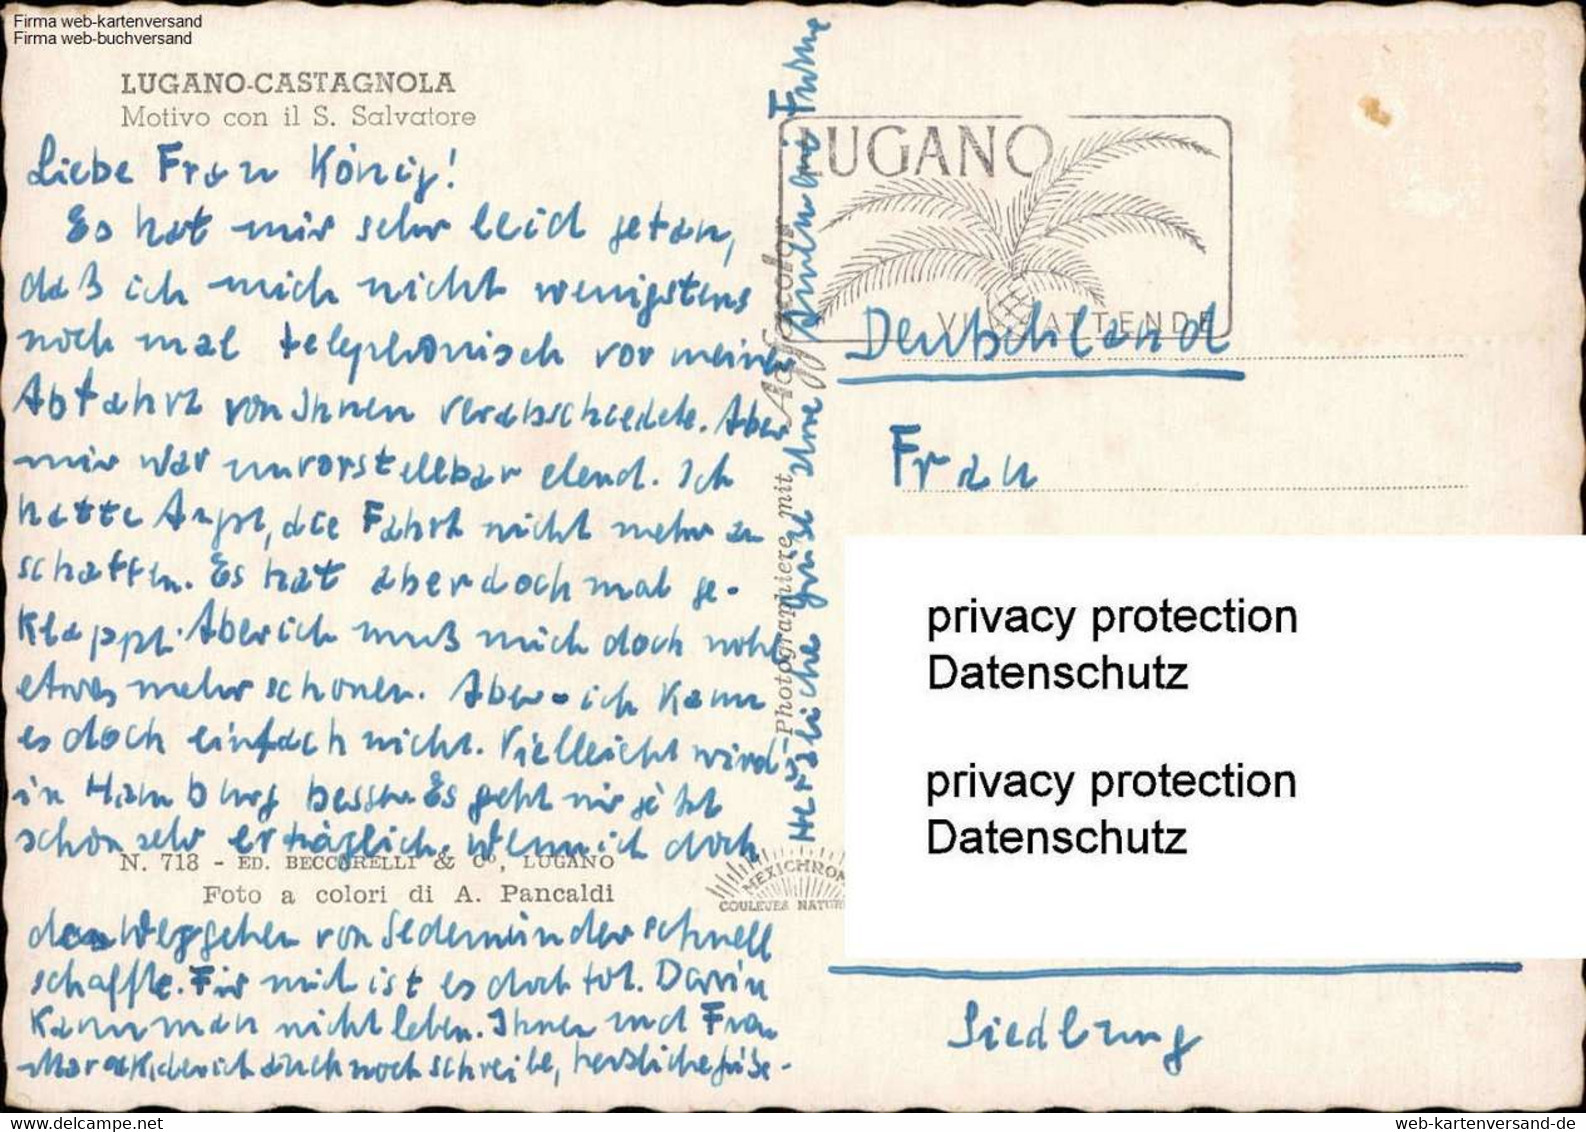 Firma web-kartenversand
Firma web-buchversand
LUGANO-CASTAGNOLA
Motivo con il S. Salvatore
Liebe Frau König!
Es hat mir sehr leid getan,
daß ich mich nicht wenigstens
noch mal telephonisch vor meiner
Abfahrt von Ihnen verabschiedete. Aber
mir war unvorstellbar elend. Ich
hatte Angst, die Fahrt nicht mehr zu
schaffen. Es hat aber doch mal ge-
klappt. Aber ich muß mich doch wohl
etwas mehr schonen. Aber ich kann
es doch einfach nicht. Vielleicht wird's
in Hamburg besser. Es geht mir jetzt
schon sehr erträglich. Wenn ich doch
N. 718 - ED. BECCARELLI & Co, LUGANO
Foto a colori di A. Pancaldi
das Weggehen von schnell
schaffte. Für mich ist es doch tot. Darin
kann man nicht leben. Ihnen und Frau
der ich auch noch schreibe, herzliche Grüße.
Herzliche Grüße Ihre
Photographiere mit Agfacolor
LUGANO
VI ATTENDE
MEXICHROM
COULEURS NATUR
Deutschland
Frau
privacy protection
Datenschutz
privacy protection
Datenschutz
Siedlung
www.delcampe.net
web-kartenversand-de